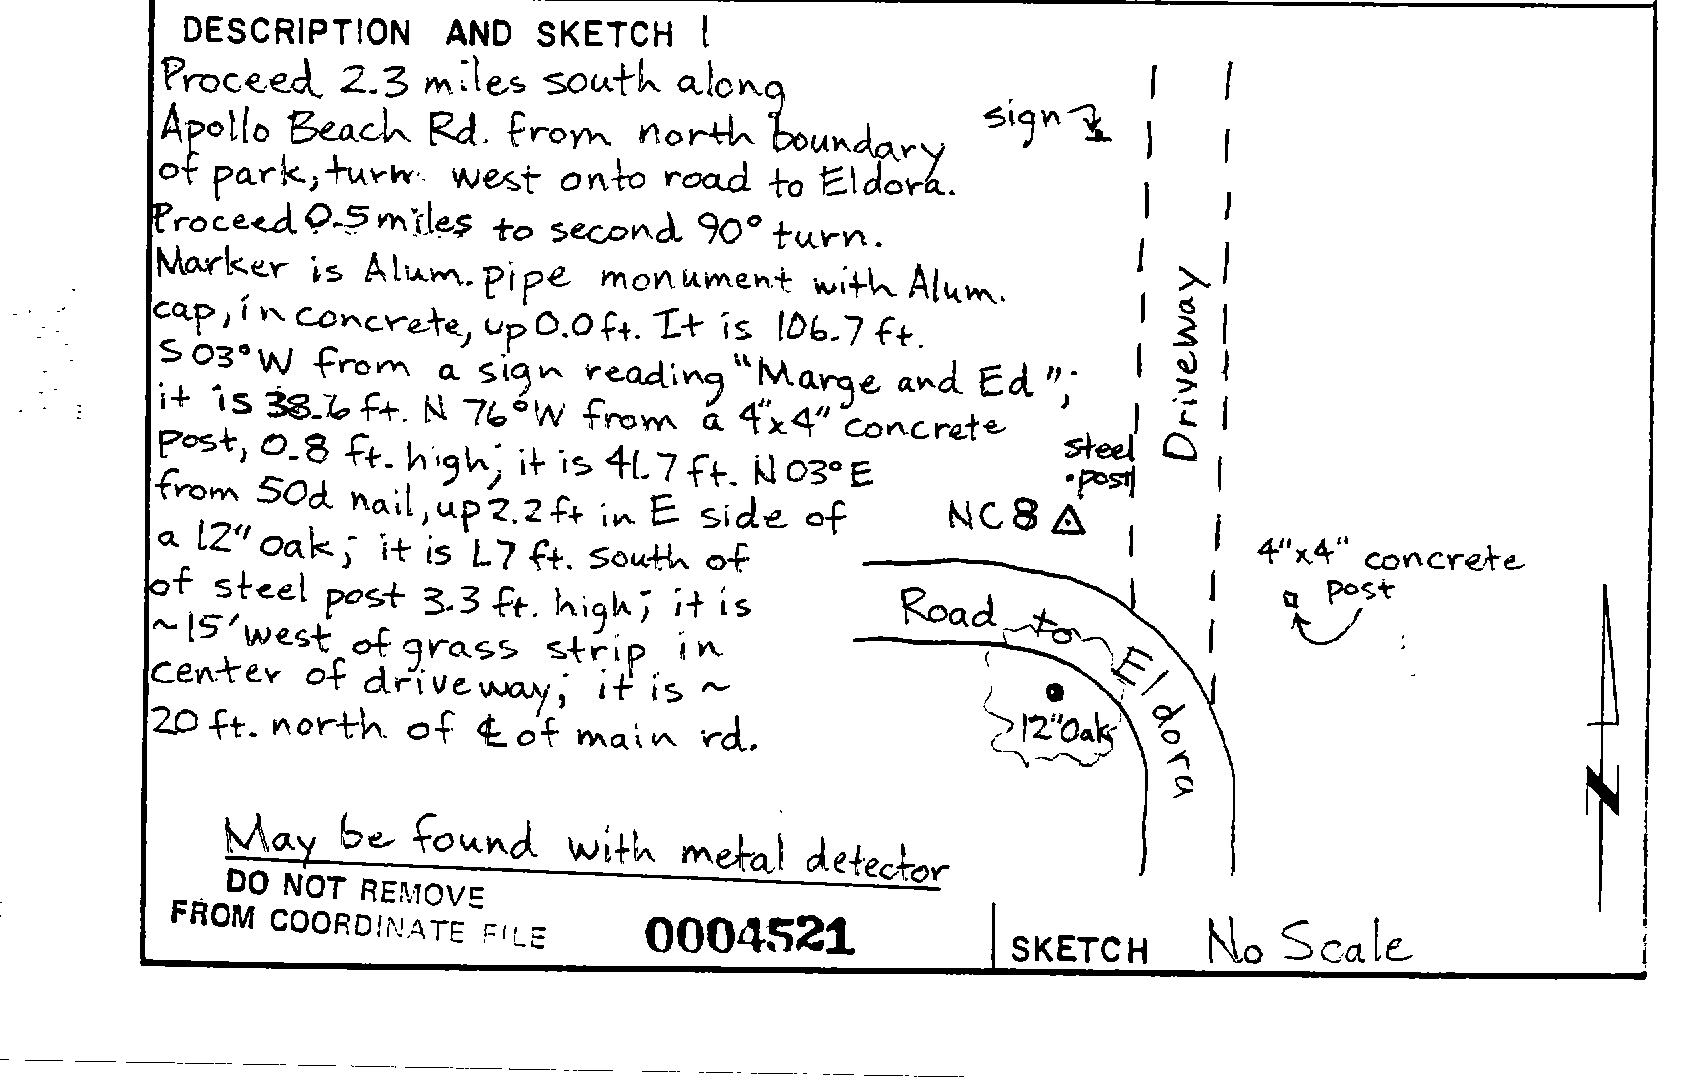 DESCRIPTION AND SKETCH
Proceed 2.3 miles south along
Apollo Beach Rd. from north boundary
of park, turn west onto road to Eldora.
Proceed 0.5 miles to second 90° turn.
Marker is Alum. pipe monument with Alum.
cap, in concrete, up 0.0 ft. It is 106.7 ft.
S 03° W from a sign reading "Marge and Ed";
it is 38.6 ft. N 76° W from a 4"x4" concrete
post, 0.8 ft. high; it is 41.7 ft. N 03° E
from 50d nail, up 2.2 ft in E side of
a 12" oak; it is 1.7 ft. south of
of steel post 3.3 ft. high; it is
~15' west of grass strip in
center of driveway; it is ~
20 ft. north of ℄ of main rd.
May be found with metal detector
DO NOT REMOVE
FROM COORDINATE FILE
0004521
sign
Driveway
steel
post
NC8
4"x4" concrete
post
Road to Eldora
12" Oak
N
SKETCH No Scale